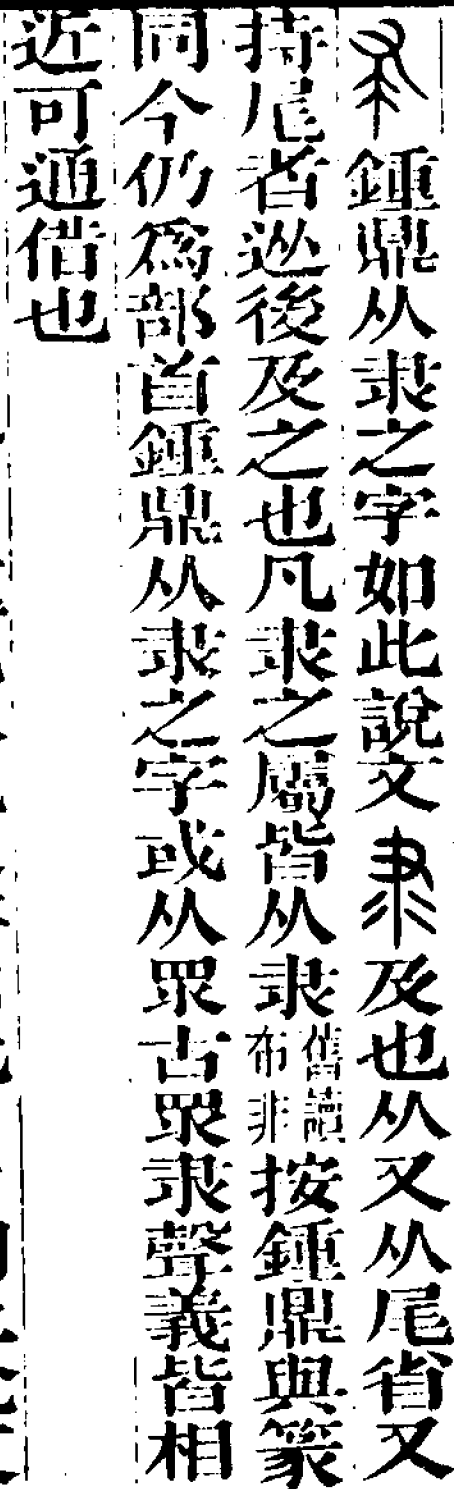 鍾鼎从隶之字如此說文隶及也从又从尾省又
持尾者從後及之也凡隶之屬皆从隶舊讀布非按鍾鼎與篆
同今仍爲部首鍾鼎从隶之字或从眔古眔隶聲義皆相
近可通借也